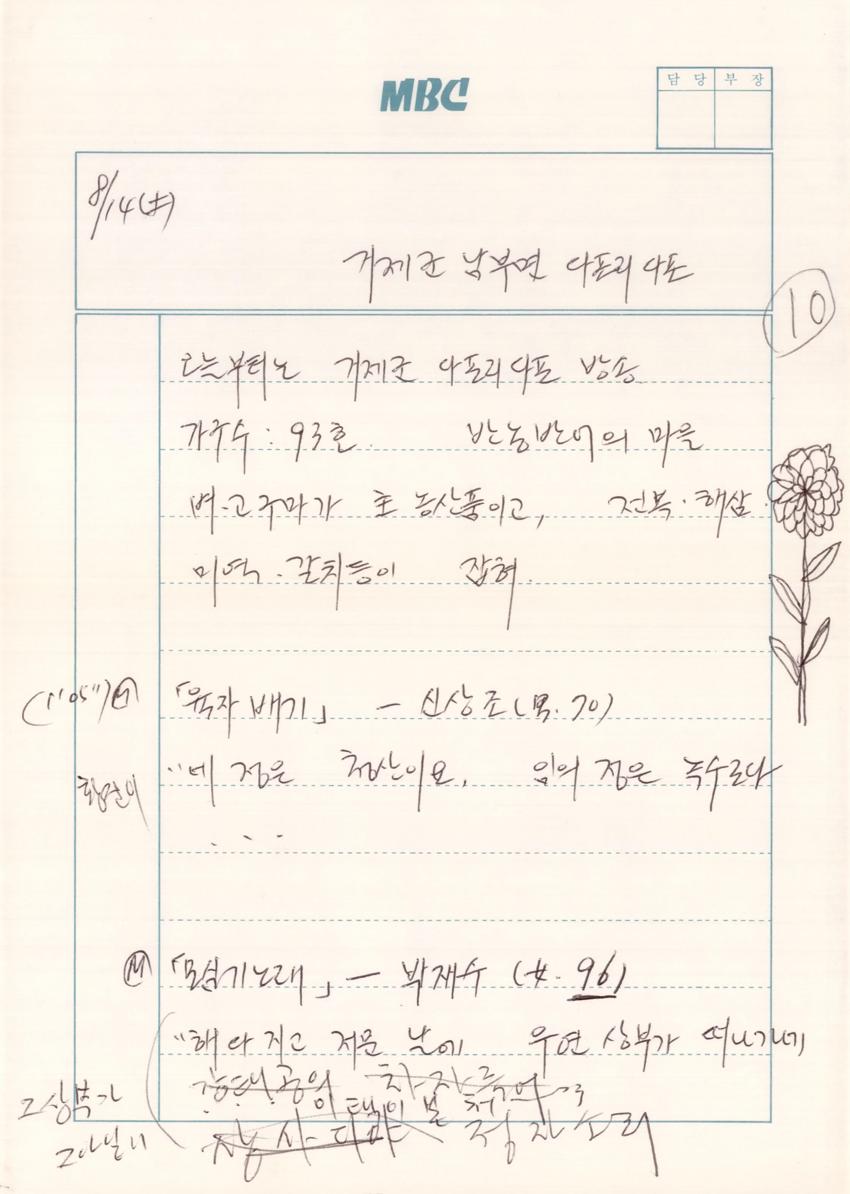 MBC
담 당 부 장
8/14(水)
거제군 남부면 다포리 다포
10
오늘부터는 거제군 다포리 다포 방송
가구수 : 93호. 반농반어의 마을
벼·고구마가 主 농산품이고, 전복·해삼
미역·갈치등이 잡혀.
(1'05") Ⓜ 「육자배기」 — 신상조(男·70)
"네 정은 청산이요, 임의 정은 녹수로다
...
Ⓜ 「모심기노래」 — 박재수 (女·96)
"해 다 지고 저문 날에 우연 상부가 떠나가네
그 상부가
정자소리